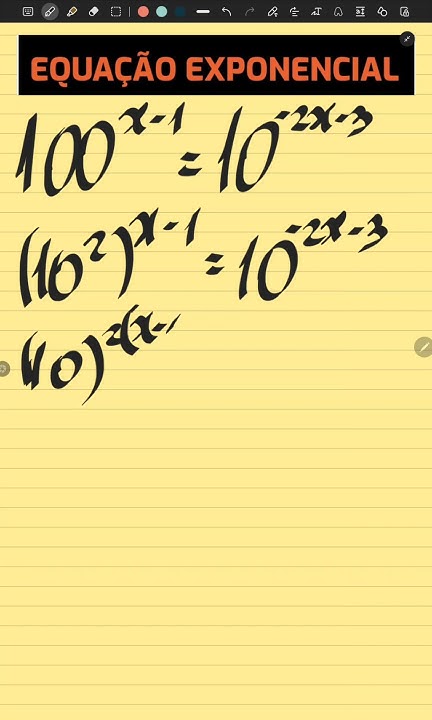 EQUAÇÃO EXPONENCIAL
100^{x-1} = 10^{-2x-3}
(10^2)^{x-1} = 10^{-2x-3}
(10)^{2(x-